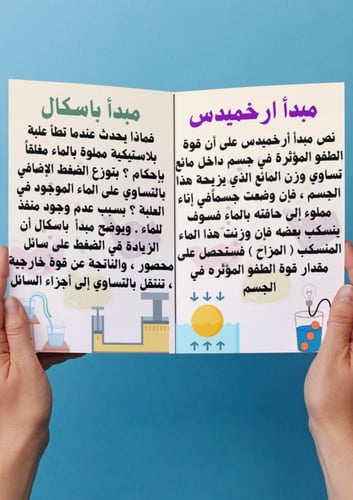 مبدأ ارخميدس
نص مبدأ أرخميدس على أن قوة
الطفو المؤثرة في جسم داخل مائع
تساوي وزن المائع الذي يزيحة هذا
الجسم ، فإن وضعت جسماًفي إناء
مملوء إلى حافته بالماء فسوف
ينسكب بعضه فإن وزنت هذا الماء
المنسكب ( المزاح ) فستحصل على
مقدار قوة الطفو المؤثره في
الجسم
مبدأ باسكال
فماذا يحدث عندما تطأ علبة
بلاستيكية مملوة بالماء مغلقاً
بإحكام ؟ يتوزع الضغط الإضافي
بالتساوي على الماء الموجود في
العلبة ؟ بسبب عدم وجود منفذ
للماء . ويوضح مبدأ باسكال أن
الزيادة في الضغط على سائل
محصور ، والناتجة عن قوة خارجية
، تنتقل بالتساوي إلى أجزاء السائل